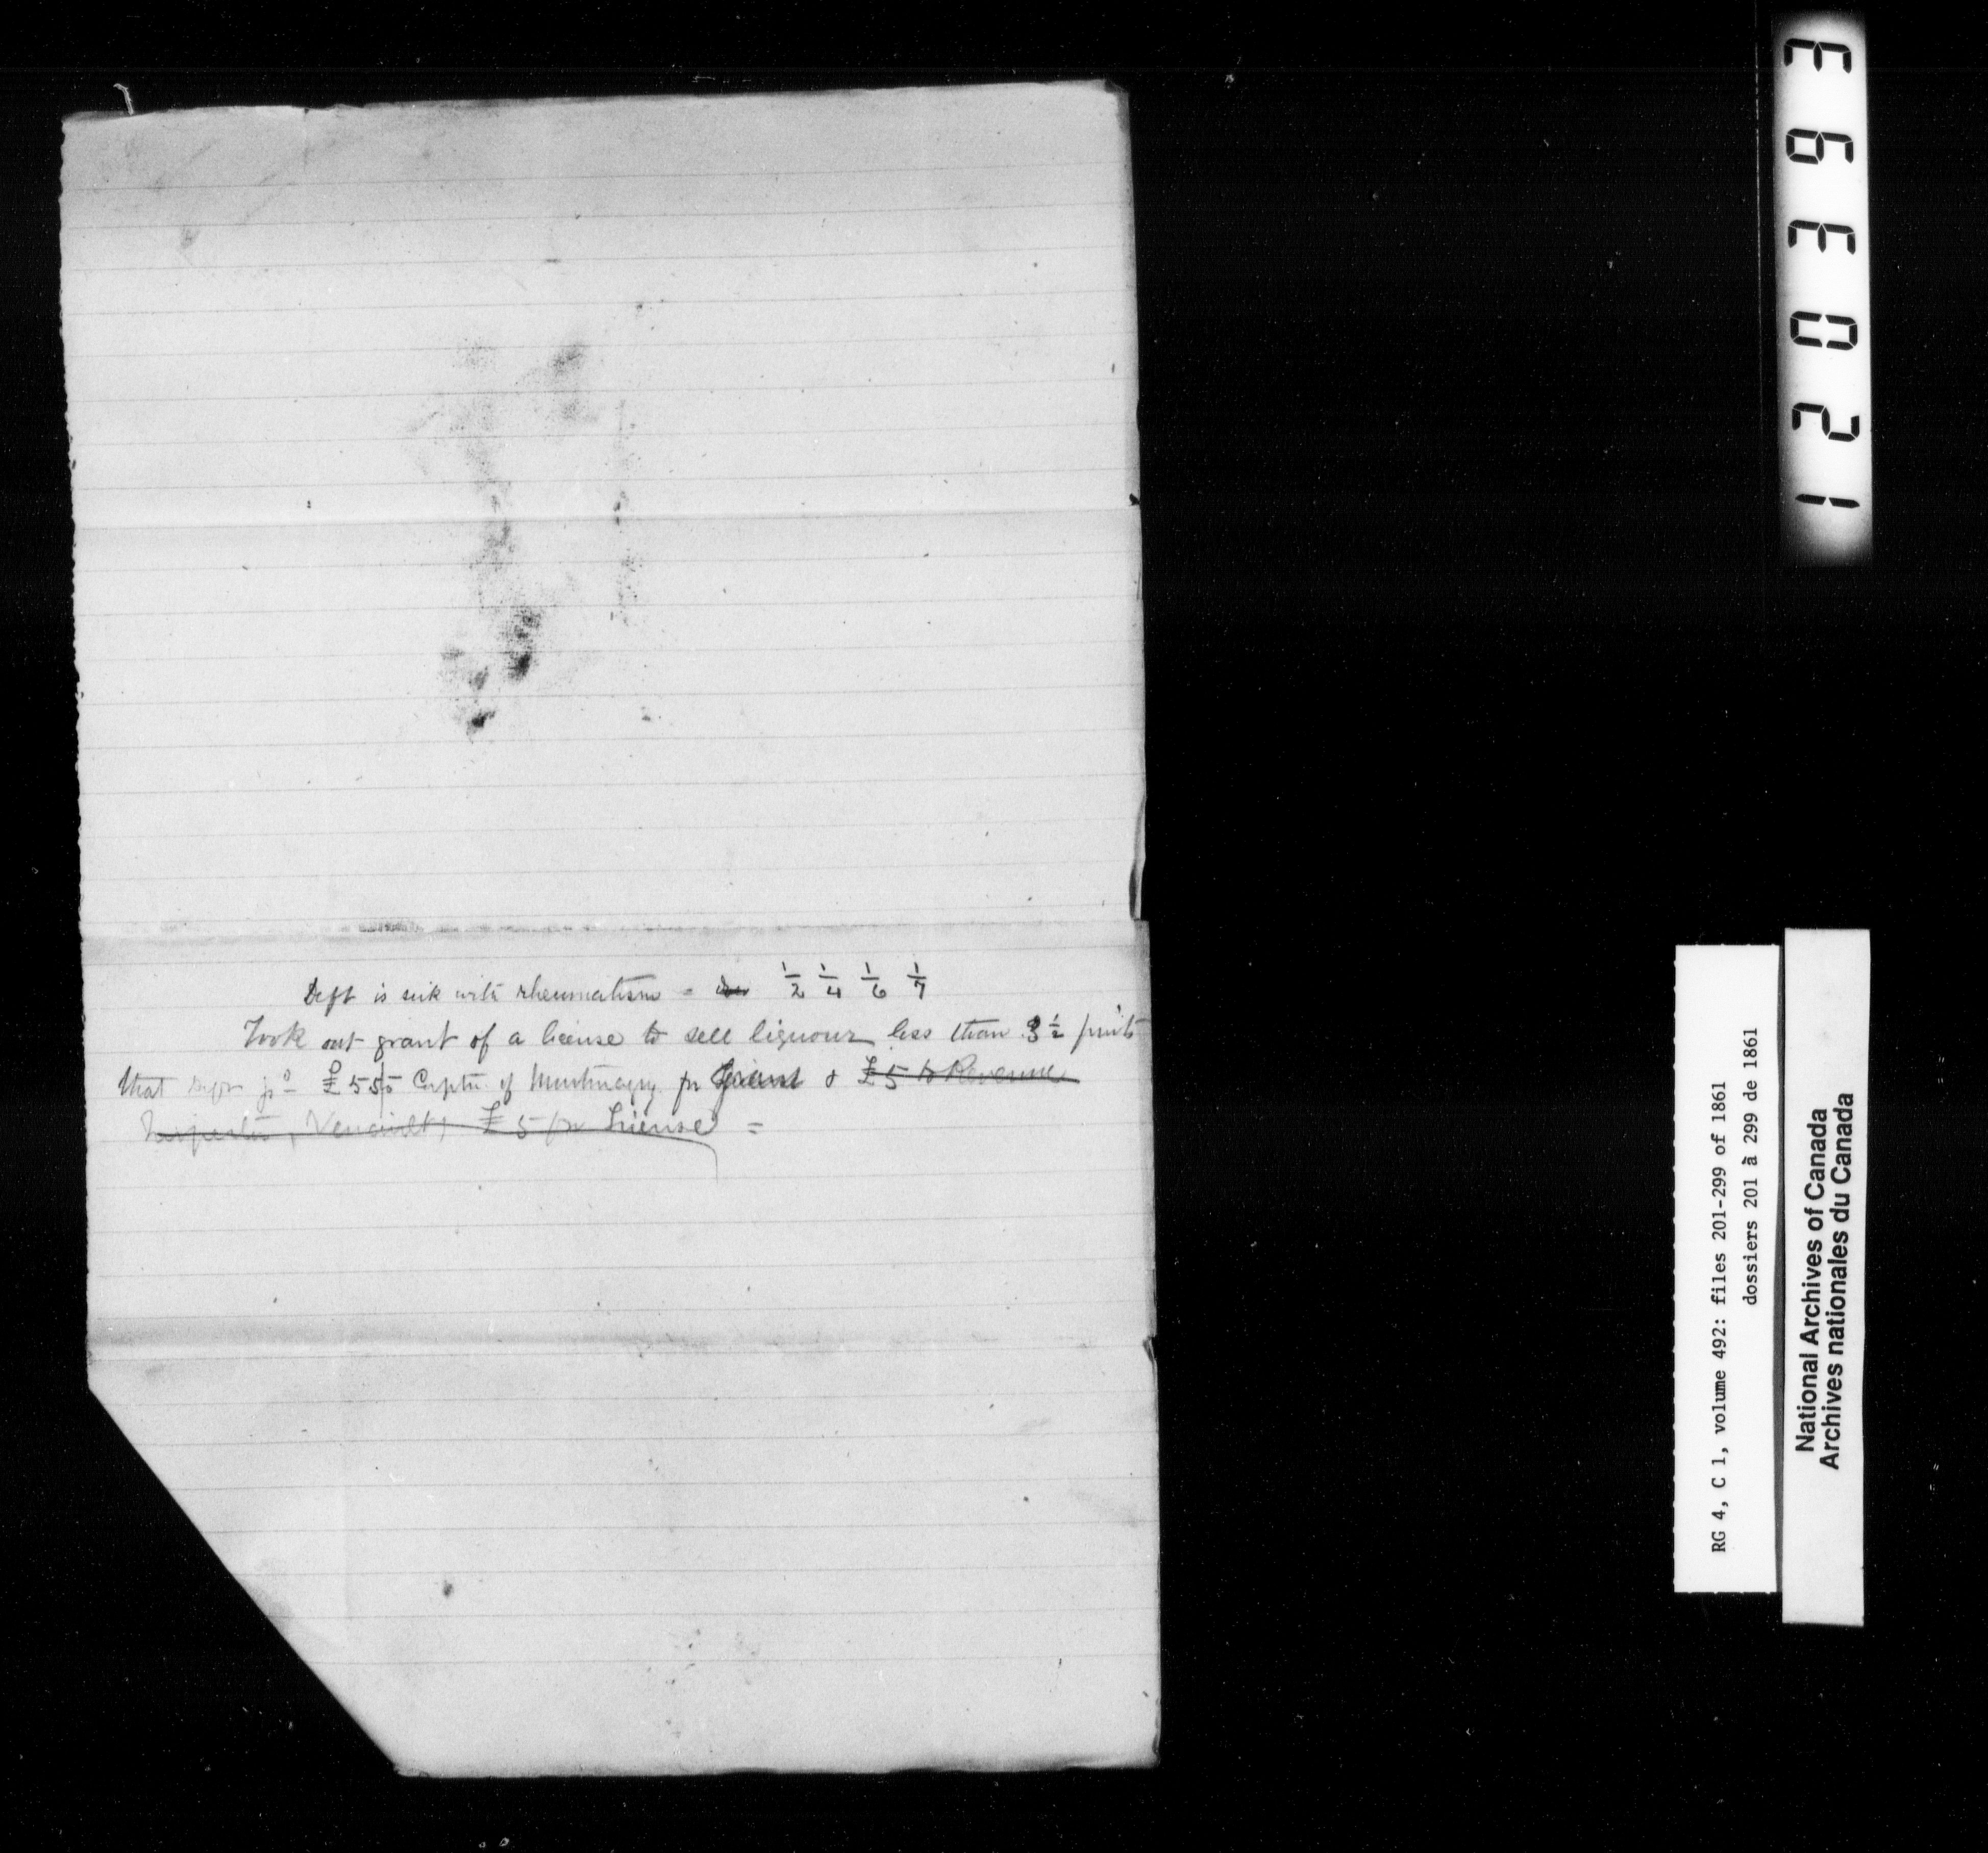 Deft is sick with rheumatism = 1/2 1/4 1/6 1/7
Took out grant of a license to sell liquour less than 3 1/2 pints
that £5 Montmagny for Grant & £5 to Revenue
£5 for License =
120393
RG 4, C 1, volume 492: files 201-299 of 1861
dossiers 201 à 299 de 1861
National Archives of Canada
Archives nationales du Canada